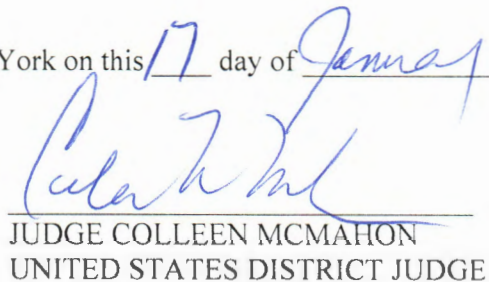 York on this 17 day of January
JUDGE COLLEEN MCMAHON
UNITED STATES DISTRICT JUDGE